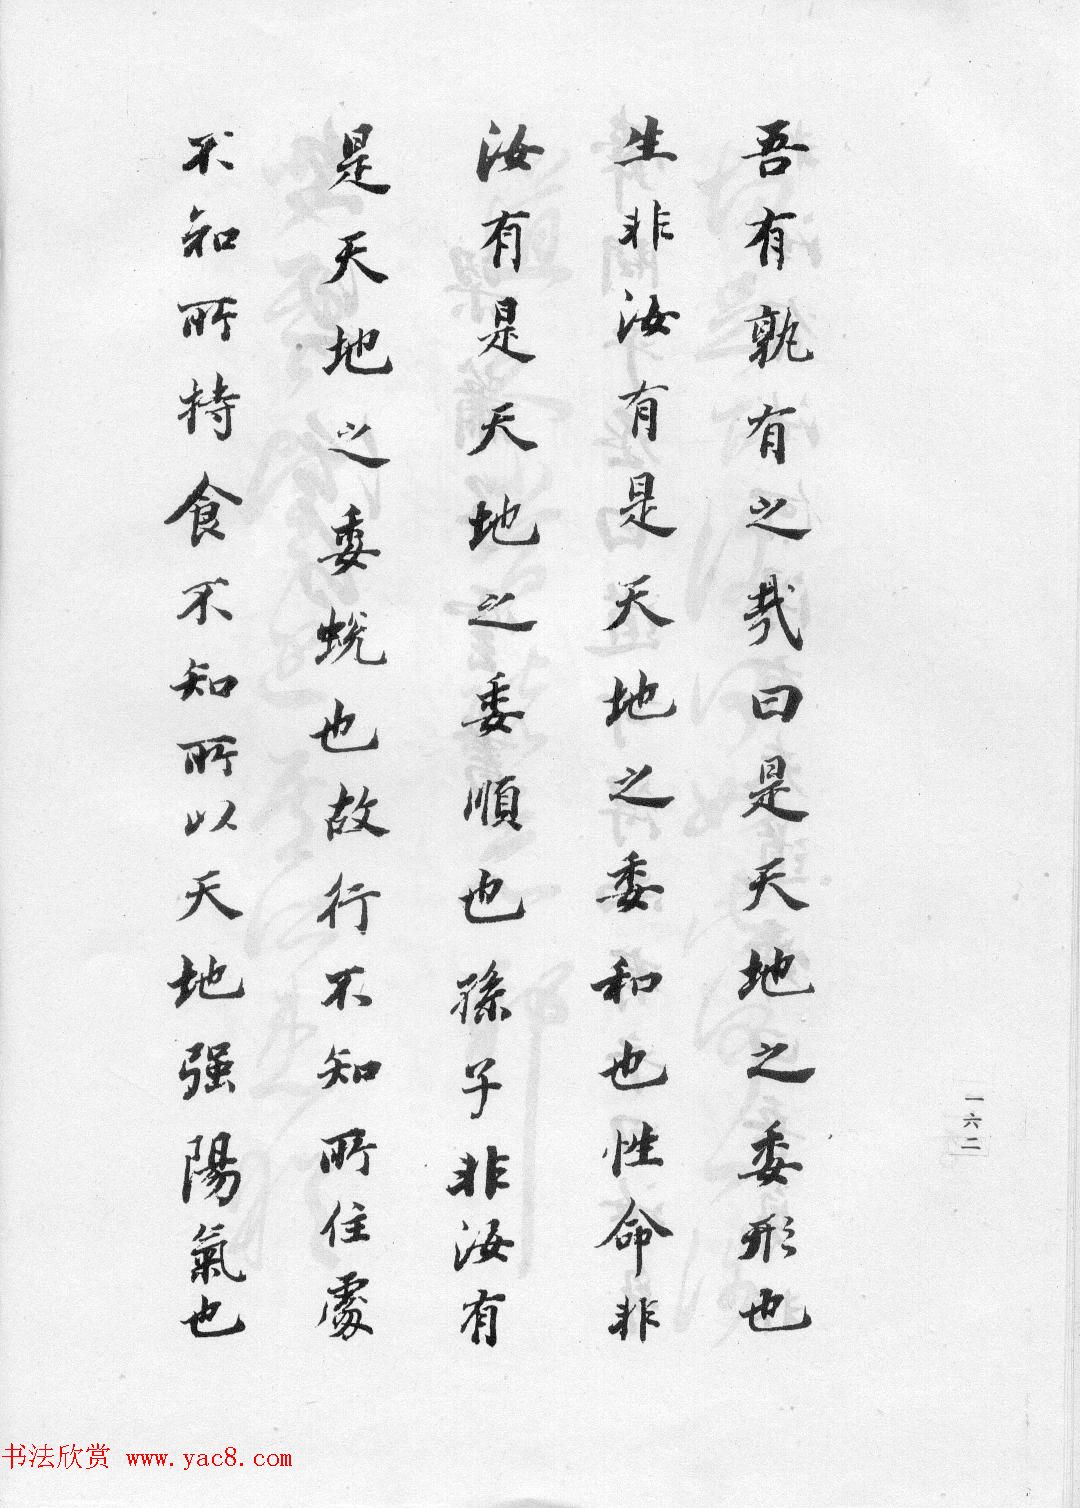 吾有孰有之哉曰是天地之委形也
生非汝有是天地之委和也性命非
汝有是天地之委順也孫子非汝有
是天地之委蛻也故行不知所往處
不知所持食不知所以天地强陽氣也
一六二
书法欣赏 www.yac8.com